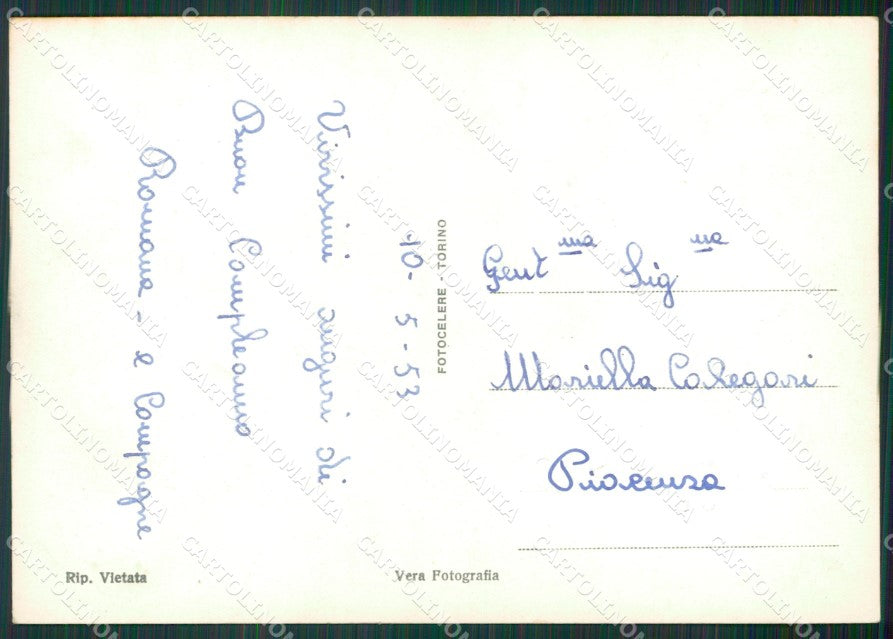 10-5-53
Vivissimi auguri di
Buon Compleanno
Romana - e Compagne
FOTOCELERE - TORINO
Gent ma Sig na
Mariella Calegari
Piacenza
Rip. Vietata
Vera Fotografia
CARTOLINOMANIA